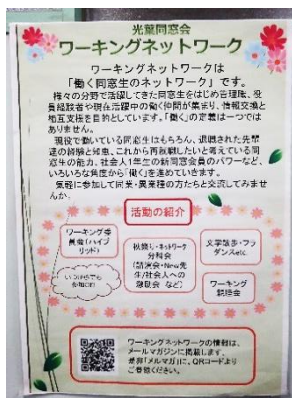 光葉同窓会
ワーキングネットワーク
ワーキングネットワークは
「働く同窓生のネットワーク」です。
様々の分野で活躍してきた同窓生をはじめ管理職、役
員経験者や現在活躍中の働く仲間が集まり、情報交換と
相互支援を目的としています。「働く」の定義は一つでは
ありません。
現役で働いている同窓生はもちろん、退職された先輩
達の経験と知恵、これから再就職したいと考えている同
窓生の能力、社会人1年生の新同窓会員のパワーなど、
いろいろな角度から「働く」を進めていきます。
気軽に参加して同業・異業種の方たちと交流してみませ
んか。
活動の紹介
ワーキング委
員会(ハイブ
リッド)
いつからでも
参加OK!
秋桜祭・ネットワーク
分科会
(講演会・New先
生/社会人への
激励会 など)
文学散歩・フラ
ダンスetc.
ワーキング
懇話会
ワーキングネットワークの情報は、
メールマガジンに掲載します。
是非「メルマガ」に、QRコードより
ご登録ください。